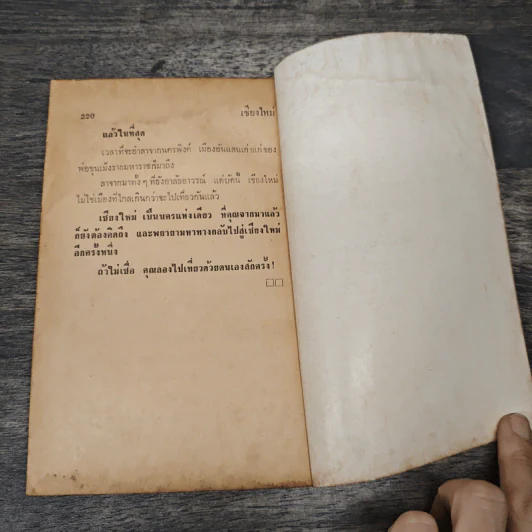 220 เชียงใหม่
แล้วในที่สุด
เวลาที่จะอำลาจากนครพิงค์ เมืองอันแสนเก่าแก่ของ
พ่อขุนเม็งรายมหาราชก็มาถึง
ลาจากมาทั้งๆ ที่ยังอาลัยอาวรณ์ แต่บัดนี้ เชียงใหม่
ไม่ใช่เมืองที่ไกลเกินกว่าจะไปเที่ยวกันแล้ว
เชียงใหม่ เป็นนครแห่งเดียว ที่คุณจากมาแล้ว
ก็ยังต้องคิดถึง และพยายามหาทางกลับไปสู่เชียงใหม่
อีกครั้งหนึ่ง
ถ้าไม่เชื่อ คุณลองไปเที่ยวด้วยตนเองสักครั้ง!